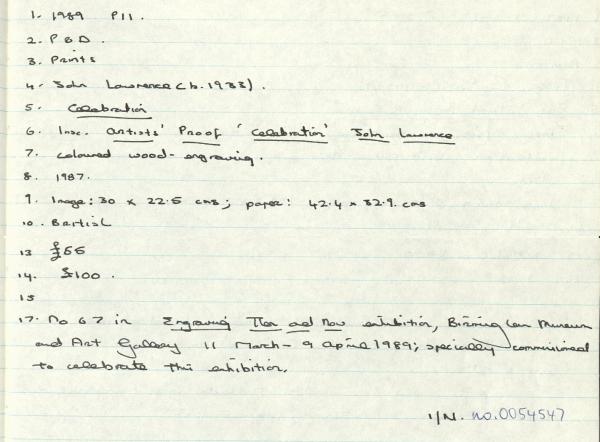 1. 1989 P11.
2. P & D.
3. Prints
4. John Lawrence (b.1933).
5. Celebration
6. Insc. Artists' Proof 'Celebration' John Lawrence
7. coloured wood-engraving.
8. 1987.
9. Image: 30 x 22.5 cms; paper: 42.4 x 32.9. cms
10. British
13 £55
14. £100.
15
17. No 67 in Engraving Then and Now exhibition, Birmingham Museum
and Art Gallery 11 March - 9 April 1989; specially commissioned
to celebrate this exhibition.
I/N. no.0054547